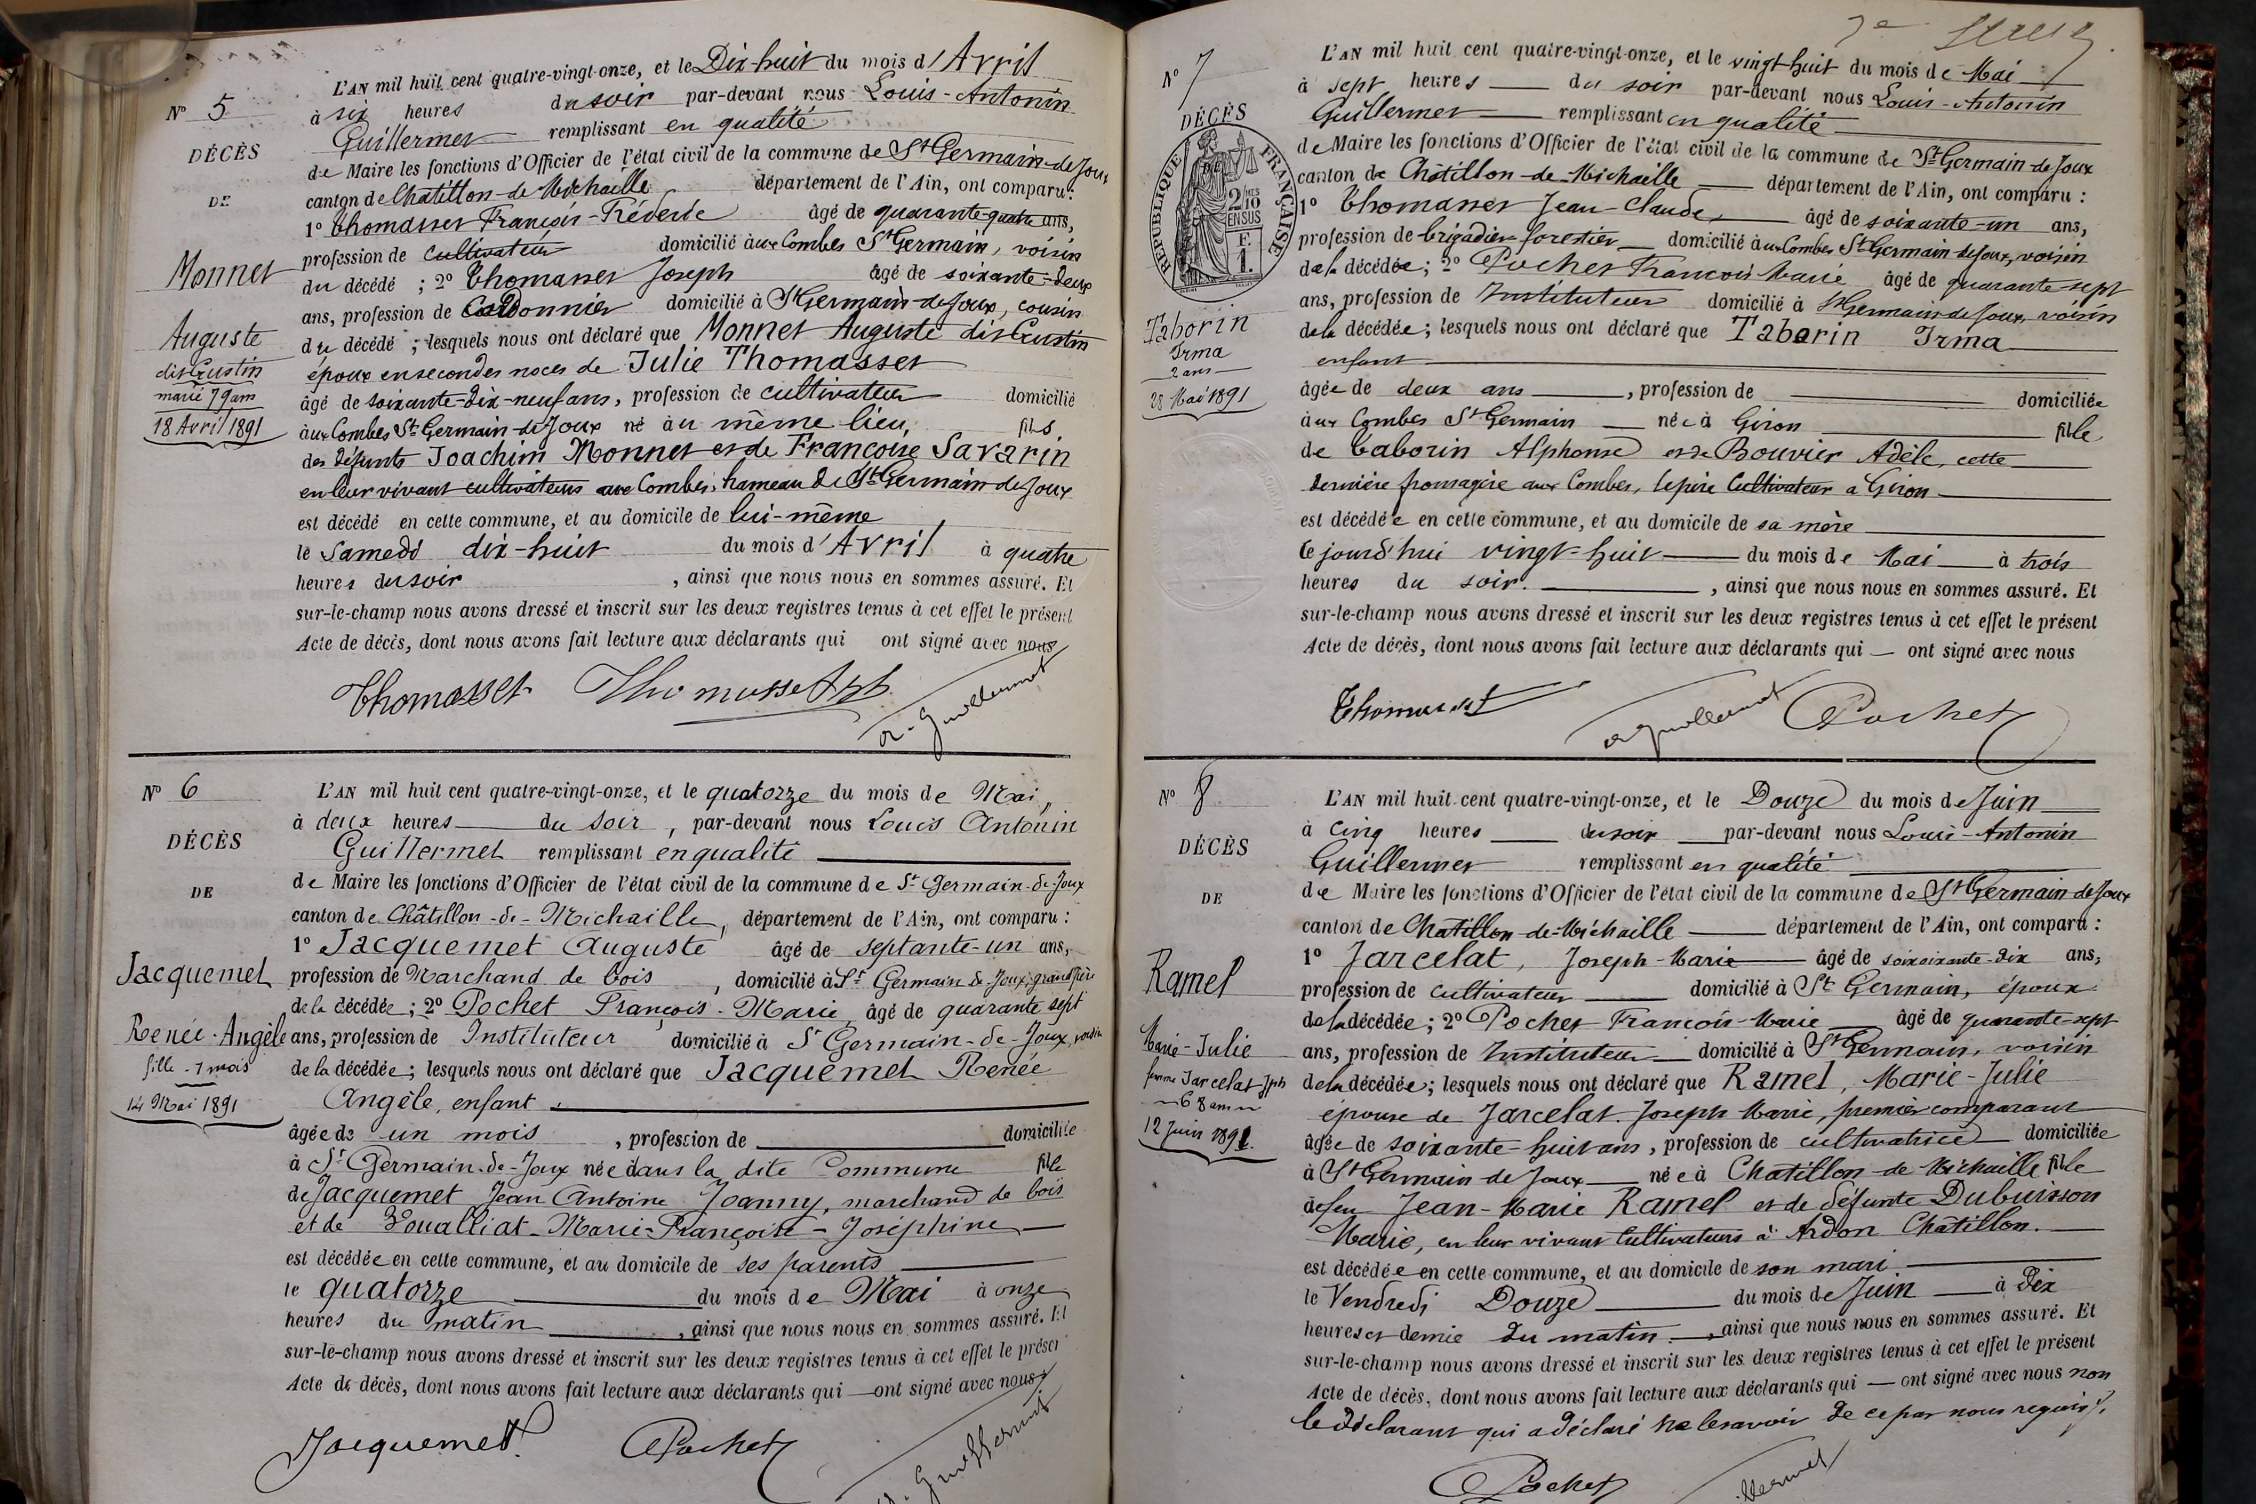 N° 5
DÉCÈS
DE
Monnet
Auguste
dit Gustin
marié 79 ans
18 Avril 1891
L'AN mil huit cent quatre-vingt-onze, et le Dix-huit du mois d'Avril
à six heures du soir par-devant nous Louis-Antonin
Guillermet remplissant en qualité
de Maire les fonctions d'Officier de l'état civil de la commune de St Germain-de-Joux
canton de Chatillon-de-Michaille département de l'Ain, ont comparu :
1° Thomasset François-Fréderic âgé de quarante-quatre ans,
profession de cultivateur domicilié aux Combes St Germain, voisin
du décédé ; 2° Thomasset Joseph âgé de soixante-deux
ans, profession de Cordonnier domicilié à St Germain-de-Joux, cousin
du décédé ; lesquels nous ont déclaré que Monnet Auguste dit Gustin
époux en secondes noces de Julie Thomasset
âgé de soixante-dix-neuf ans, profession de cultivateur domicilié
aux Combes St Germain-de-Joux né au même lieu, fils
des défunts Joachim Monnet et de Françoise Savarin
en leur vivant cultivateurs aux Combes, hameau de St Germain-de-Joux
est décédé en cette commune, et au domicile de lui-même
le Samedi dix-huit du mois d'Avril à quatre
heures du soir , ainsi que nous nous en sommes assuré. Et
sur-le-champ nous avons dressé et inscrit sur les deux registres tenus à cet effet le présent
Acte de décès, dont nous avons fait lecture aux déclarants qui ont signé avec nous
Thomasset Thomasset Jph
A. Guillermet
N° 6
DÉCÈS
DE
Jacquemet
Renée-Angèle
fille - 1 mois
14 Mai 1891
L'AN mil huit cent quatre-vingt-onze, et le quatorze du mois de Mai,
à deux heures du soir , par-devant nous Louis Antonin
Guillermet remplissant en qualité
de Maire les fonctions d'Officier de l'état civil de la commune de St Germain-de-Joux
canton de Châtillon-de-Michaille, département de l'Ain, ont comparu :
1° Jacquemet Auguste âgé de septante-un ans,
profession de Marchand de bois , domicilié à St Germain-de-Joux, grand père
de la décédée ; 2° Pochet François-Marie, âgé de quarante sept
ans, profession de Instituteur domicilié à St Germain-de-Joux, voisin
de la décédée ; lesquels nous ont déclaré que Jacquemet Renée
Angèle, enfant
âgée de un mois , profession de domiciliée
à St Germain-de-Joux née dans la dite Commune fille
de Jacquemet Jean Antoine Joanny, marchand de bois
et de Poualliat Marie-Françoise-Joséphine
est décédée en cette commune, et au domicile de ses parents
le quatorze du mois de Mai à onze
heures du matin , ainsi que nous nous en sommes assuré. Et
sur-le-champ nous avons dressé et inscrit sur les deux registres tenus à cet effet le présen
Acte de décès, dont nous avons fait lecture aux déclarants qui ont signé avec nous
Jacquemet Pochet
A. Guillermet
7e
N° 7
DÉCÈS
DE
RÉPUBLIQUE FRANÇAISE
2/10MES
EN SUS
F.
1.
Taborin
Irma
2 ans
28 Mai 1891
L'AN mil huit cent quatre-vingt-onze, et le vingt-huit du mois de Mai
à sept heures du soir par-devant nous Louis-Antonin
Guillermet remplissant en qualité
de Maire les fonctions d'Officier de l'état civil de la commune de St Germain-de-Joux
canton de Châtillon-de-Michaille département de l'Ain, ont comparu :
1° Thomasset Jean-Claude, âgé de soixante-un ans,
profession de brigadier forestier domicilié aux Combes St Germain de Joux, voisin
de la décédée ; 2° Pochet François Marie âgé de quarante-sept
ans, profession de Instituteur domicilié à St Germain de Joux, voisin
de la décédée ; lesquels nous ont déclaré que Taborin Irma
enfant
âgée de deux ans , profession de domiciliée
aux Combes St Germain née à Giron fille
de Taborin Alphonse et de Bouvier Adèle, cette
dernière fromagère aux Combes, le père Cultivateur à Giron
est décédée en cette commune, et au domicile de sa mère
le jourd'hui vingt-huit du mois de Mai à trois
heures du soir. , ainsi que nous nous en sommes assuré. Et
sur-le-champ nous avons dressé et inscrit sur les deux registres tenus à cet effet le présent
Acte de décès, dont nous avons fait lecture aux déclarants qui ont signé avec nous
Thomasset A. Guillermet Pochet
N° 8
DÉCÈS
DE
Ramel
Marie-Julie
femme Jarcelat Jph
68 ans
12 Juin 1891.
L'AN mil huit cent quatre-vingt-onze, et le Douze du mois de Juin
à Cinq heures du soir par-devant nous Louis-Antonin
Guillermet remplissant en qualité
de Maire les fonctions d'Officier de l'état civil de la commune de St Germain-de-Joux
canton de Chatillon-de-Michaille département de l'Ain, ont comparu :
1° Jarcelat, Joseph-Marie âgé de soixoixante-dix ans,
profession de cultivateur domicilié à St Germain, époux
de la décédée ; 2° Pochet François-Marie âgé de quarante-sept
ans, profession de Instituteur domicilié à St Germain, voisin
de la décédée ; lesquels nous ont déclaré que Ramel, Marie-Julie
épouse de Jarcelat Joseph Marie, premier comparant
âgée de soixante-huit ans, profession de cultivatrice domiciliée
à St Germain-de-Joux née à Chatillon-de-Michaille fille
de feu Jean-Marie Ramel et de défunte Dubuisson
Marie, en leur vivant Cultivateurs à Ardon Châtillon.
est décédée en cette commune, et au domicile de son mari
le Vendredi Douze du mois de Juin à Dix
heures et demie du matin , ainsi que nous nous en sommes assuré. Et
sur-le-champ nous avons dressé et inscrit sur les deux registres tenus à cet effet le présent
Acte de décès, dont nous avons fait lecture aux déclarants qui ont signé avec nous non
le déclarant qui a déclaré ne le savoir de ce par nous requis.
Pochet